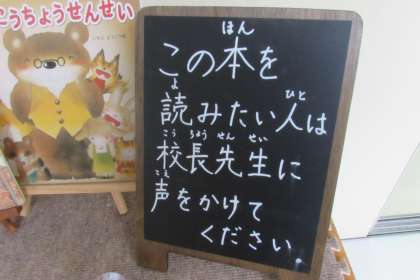 こうちょうせんせい
ほん
この本を
よ ひと
読みたい人は
こう ちょう せん せい
校長先生に
こえ
声をかけて
ください